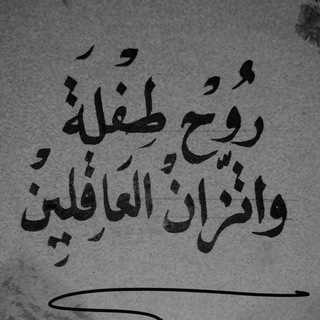 رُوْح طِفْلَة
واتزّانْ العَاقِلِينْ